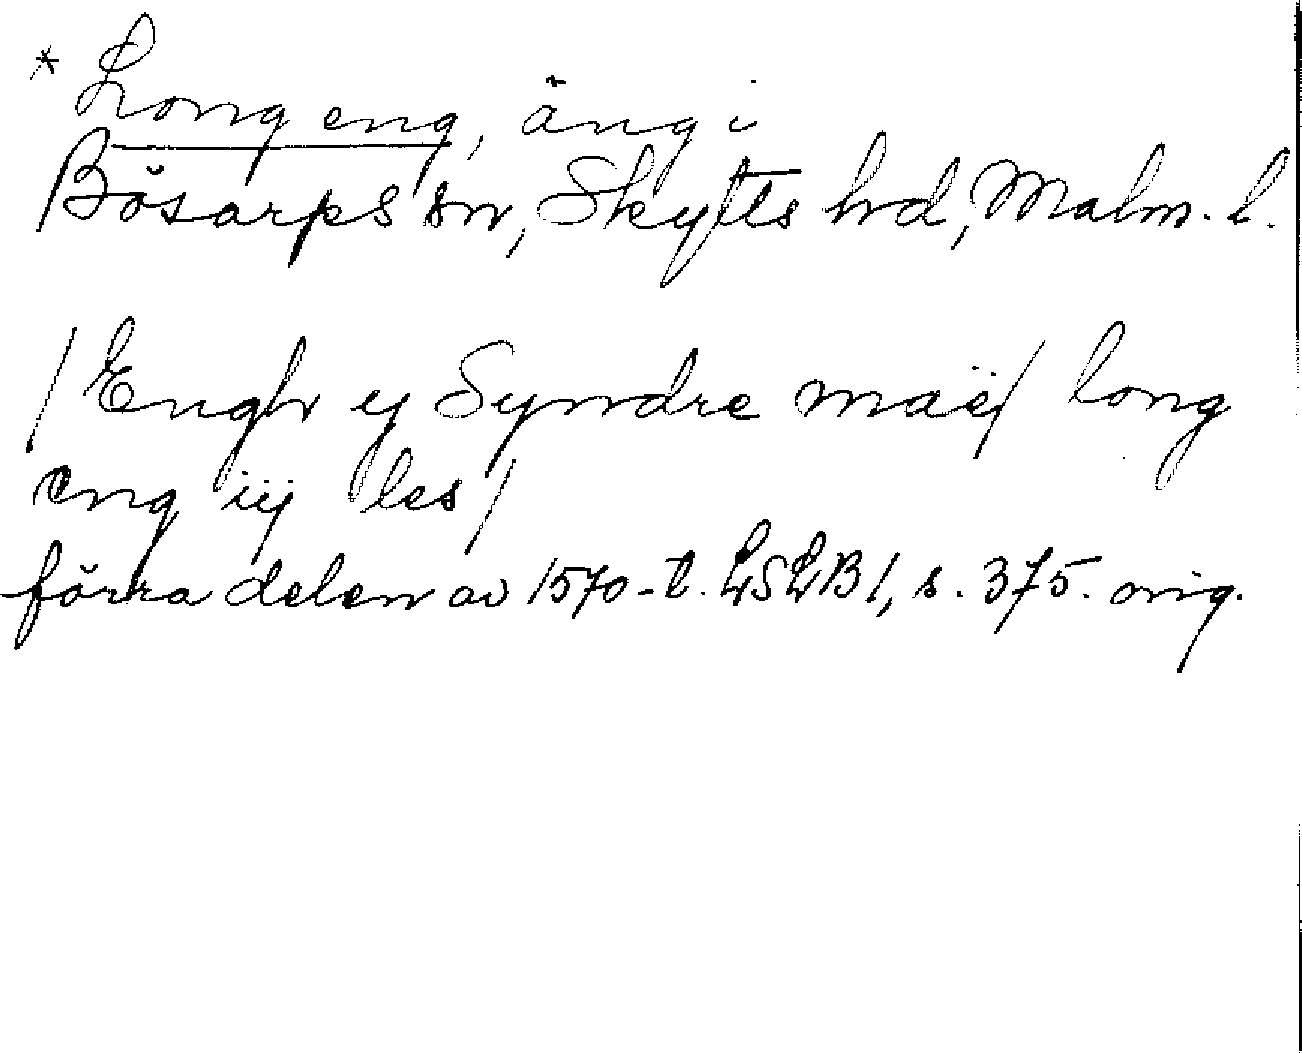 * Long eng, äng i
Bösarps sn, Skytts hd, Malm. l.
/Engh y Syndre maë/ long
eng iij les/
förra delen av 1570-t. LSLB 1, s. 375. orig.